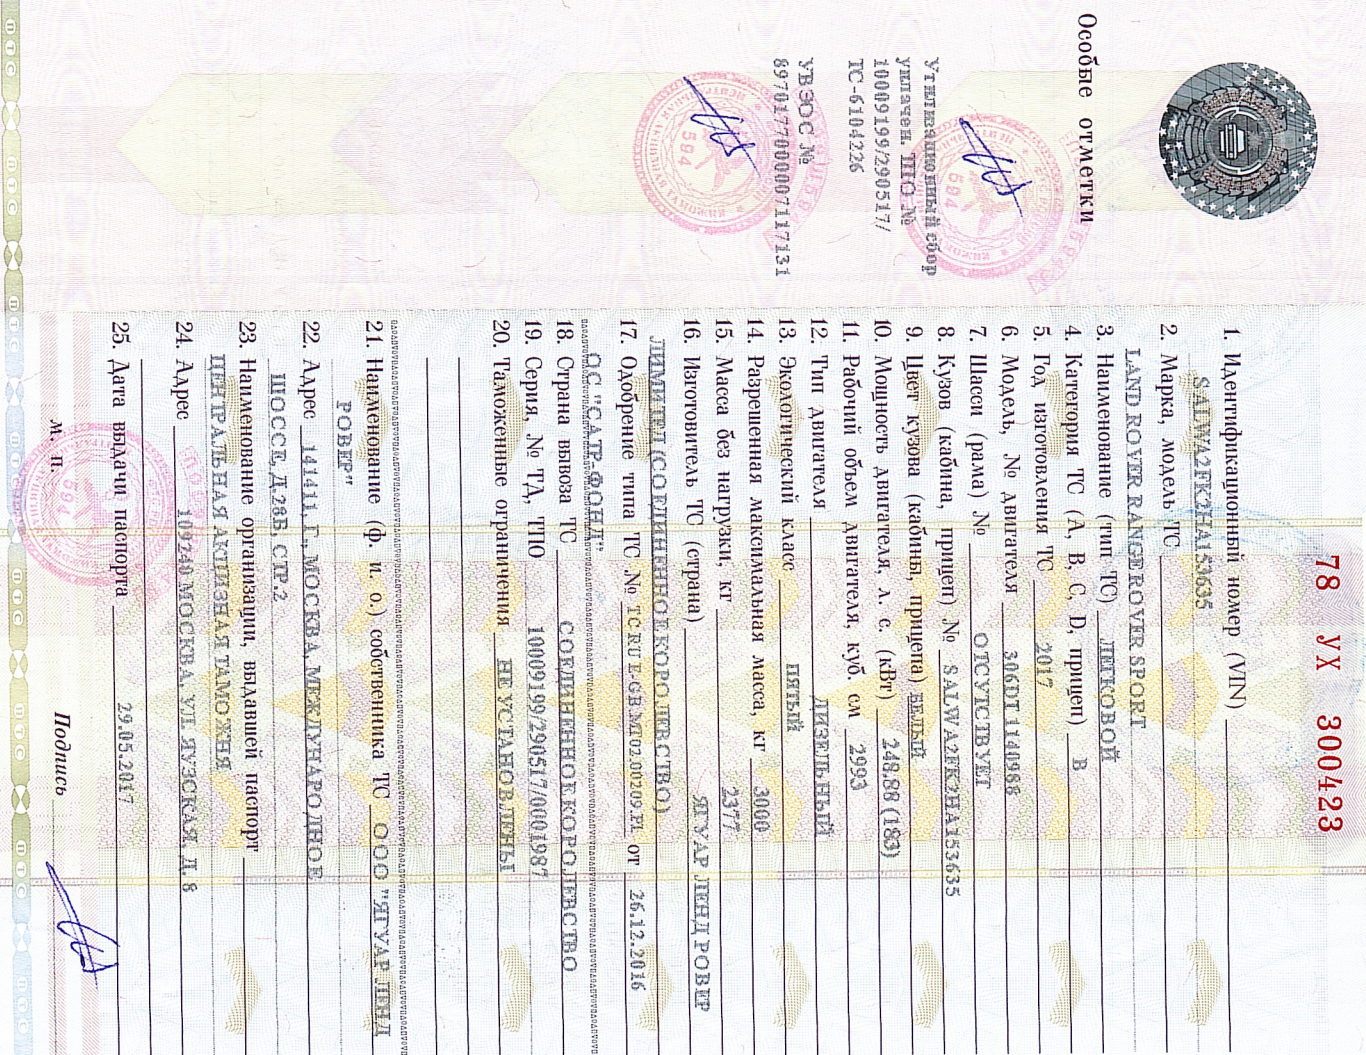 78 УХ 300423
1. Идентификационный номер (VIN)
SALWA2FK2HA153635
2. Марка, модель ТС
LAND ROVER RANGE ROVER SPORT
3. Наименование (тип ТС) ЛЕГКОВОЙ
4. Категория ТС (А, В, С, D, прицеп) В
5. Год изготовления ТС 2017
6. Модель, № двигателя 306DT 1140988
7. Шасси (рама) № ОТСУТСТВУЕТ
8. Кузов (кабина, прицеп) № SALWA2FK2HA153635
9. Цвет кузова (кабины, прицепа) БЕЛЫЙ
10. Мощность двигателя, л. с. (кВт) 248.88 (183)
11. Рабочий объем двигателя, куб. см 2993
12. Тип двигателя ДИЗЕЛЬНЫЙ
13. Экологический класс ПЯТЫЙ
14. Разрешенная максимальная масса, кг 3000
15. Масса без нагрузки, кг 2377
16. Изготовитель ТС (страна) ЯГУАР ЛЕНД РОВЕР
ЛИМИТЕД (СОЕДИНЕННОЕ КОРОЛЕВСТВО)
17. Одобрение типа ТС № ТС RU Е-GB.МТ02.00209.Р1 от 26.12.2016
ОС "САТР-ФОНД"
18. Страна вывоза ТС СОЕДИНЕННОЕ КОРОЛЕВСТВО
19. Серия, № ТД, ТПО 10009199/290517/0001987
20. Таможенные ограничения НЕ УСТАНОВЛЕНЫ
21. Наименование (ф. и. о.) собственника ТС ООО "ЯГУАР ЛЕНД
РОВЕР"
22. Адрес 141411, Г., МОСКВА, МЕЖДУНАРОДНОЕ
ШОССЕ, Д.28Б, СТР.2
23. Наименование организации, выдавшей паспорт
ЦЕНТРАЛЬНАЯ АКЦИЗНАЯ ТАМОЖНЯ
24. Адрес 109240 МОСКВА, УЛ. ЯУЗСКАЯ, Д. 8
25. Дата выдачи паспорта 29.05.2017
м. п. Подпись
Особые отметки
Утилизационный сбор
уплачен. ТПО №
10009199/290517/
ТС-6104226
УВЭОС №
8970177000007117131
594
594
594